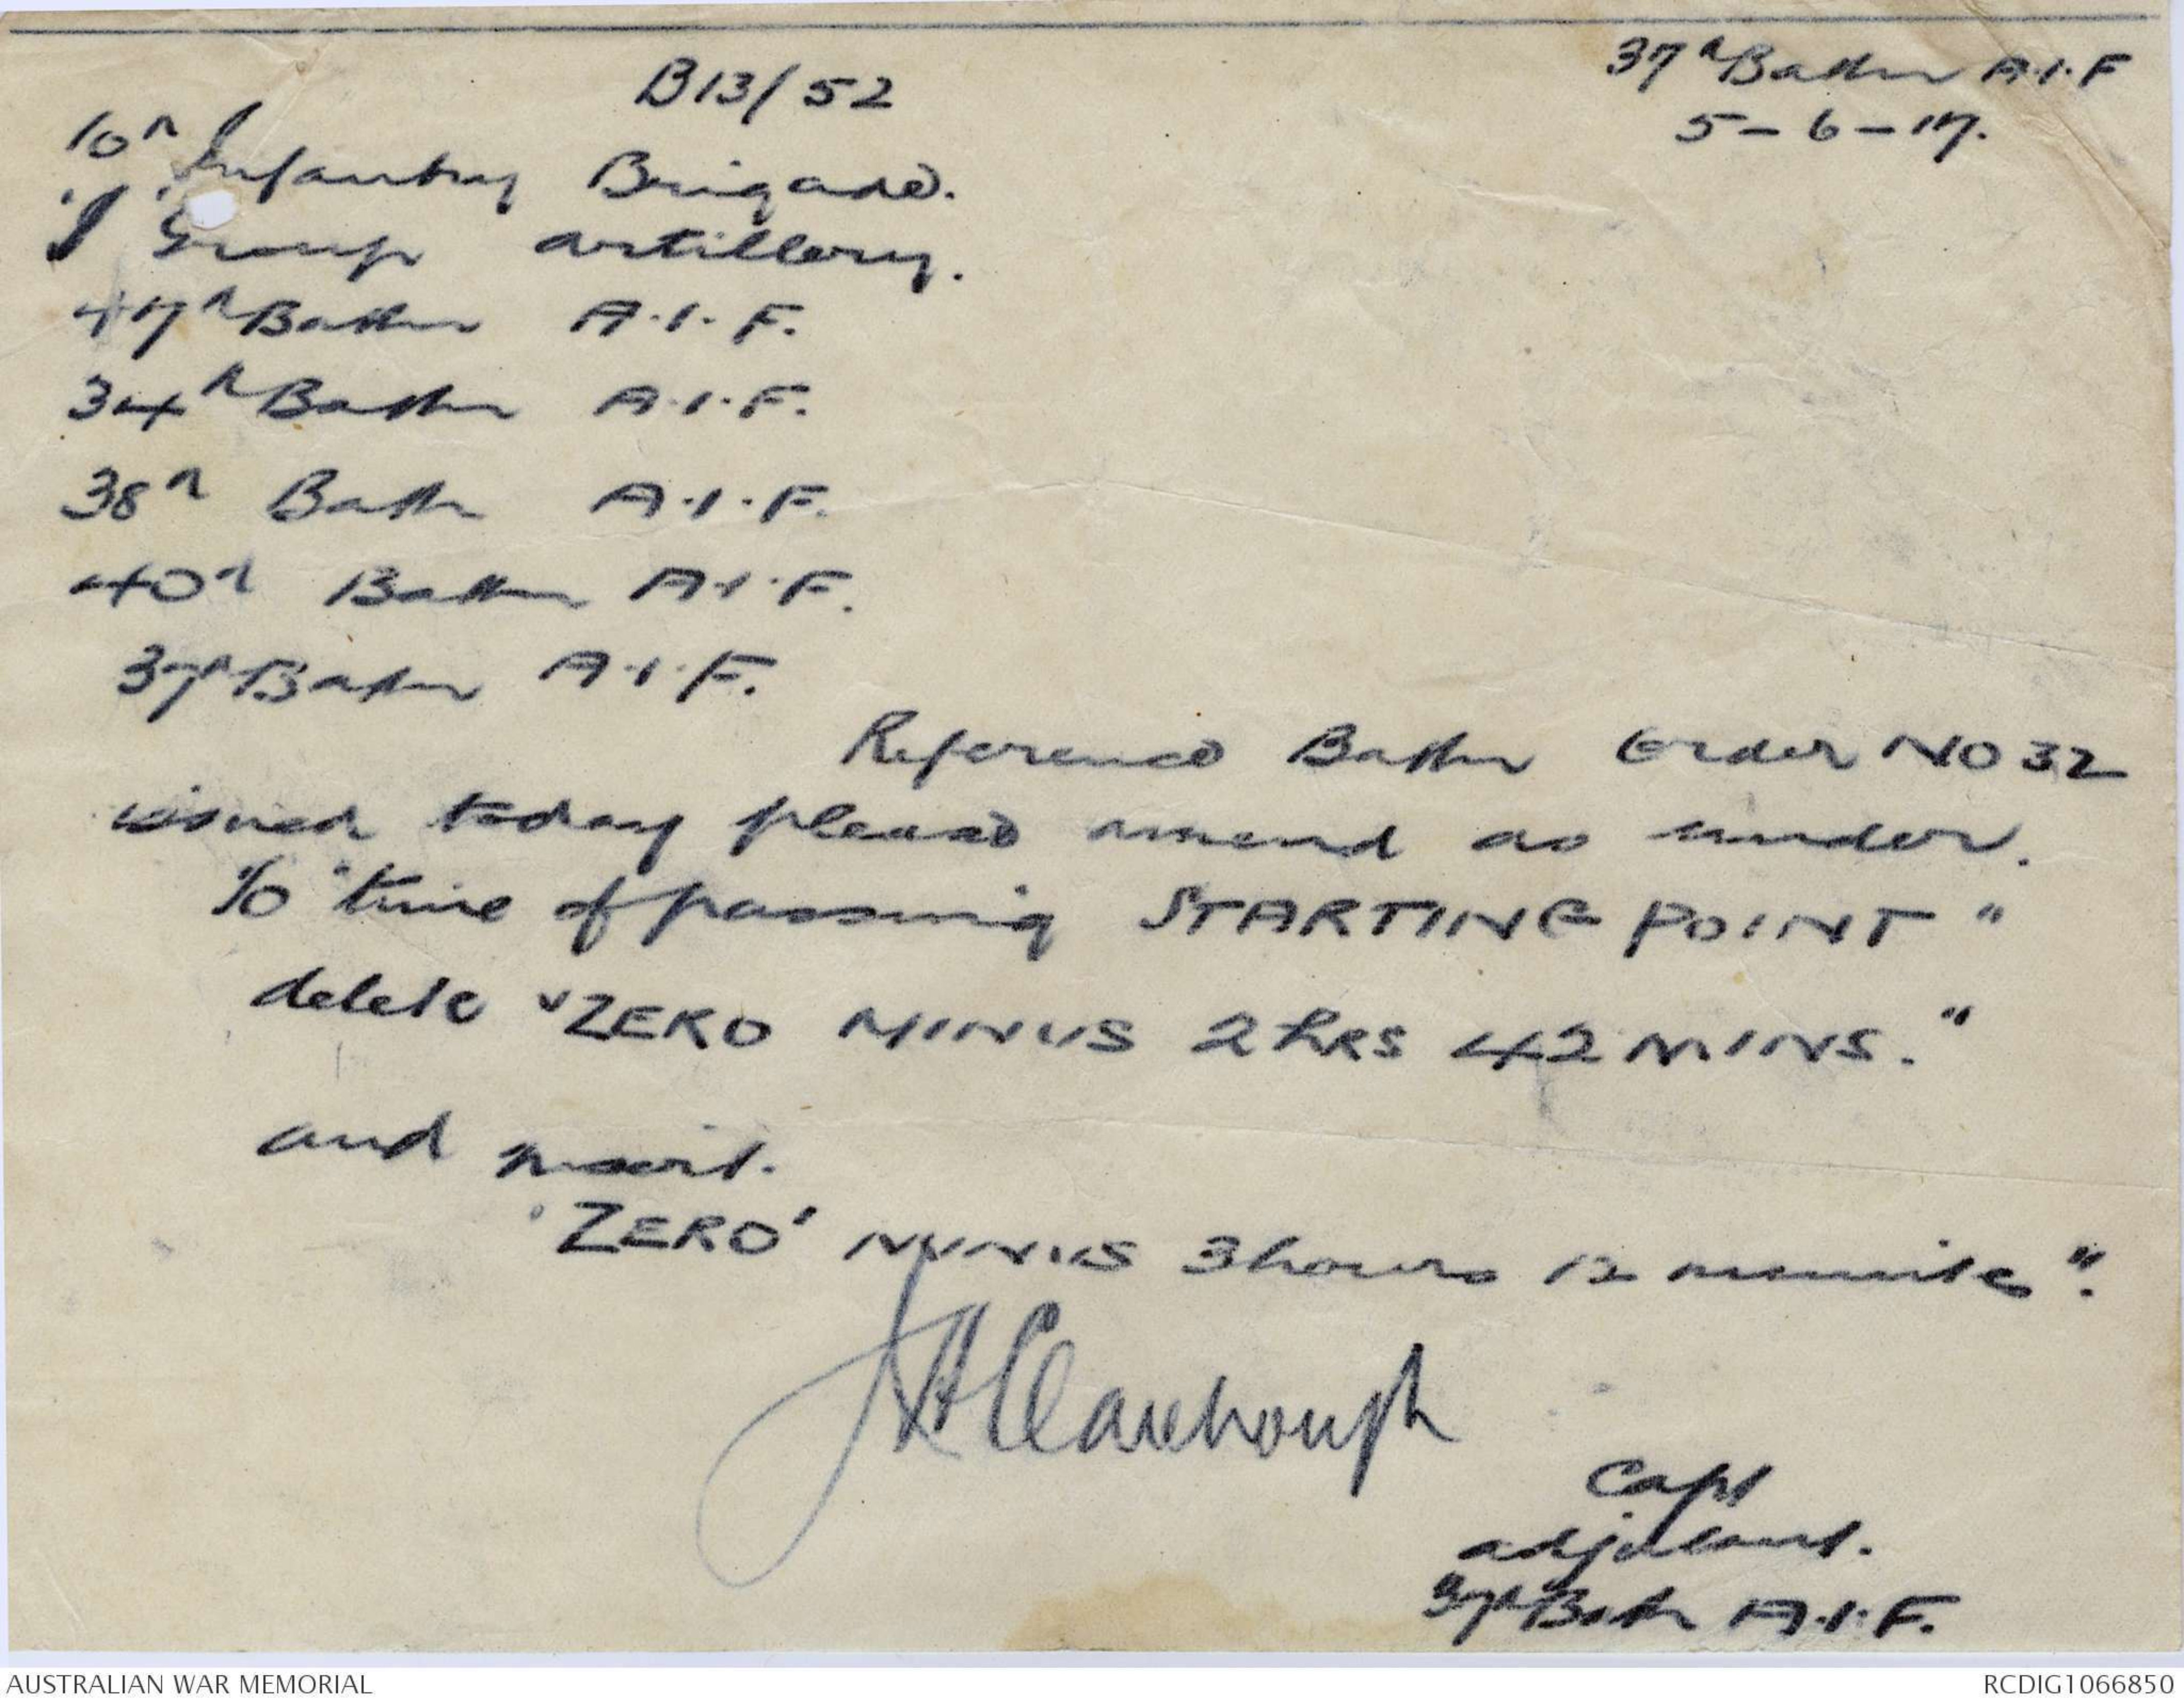 B13/52
37th Battn A.I.F
5-6-17.
10th Infantry Brigade.
Group artillery.
47th Battn A.I.F.
34th Battn A.I.F.
38th Battn A.I.F.
40th Battn A.I.F.
37th Battn A.I.F.
Reference Battn Order NO 32
issued today please amend as under.
"time of passing STARTING POINT"
delete "ZERO MINUS 2 hRS 42 MINS."
and insert.
'ZERO' MINUS 3 hours 12 minute".
Capt
adjutant.
37th Battn A.I.F.
AUSTRALIAN WAR MEMORIAL
RCDIG1066850